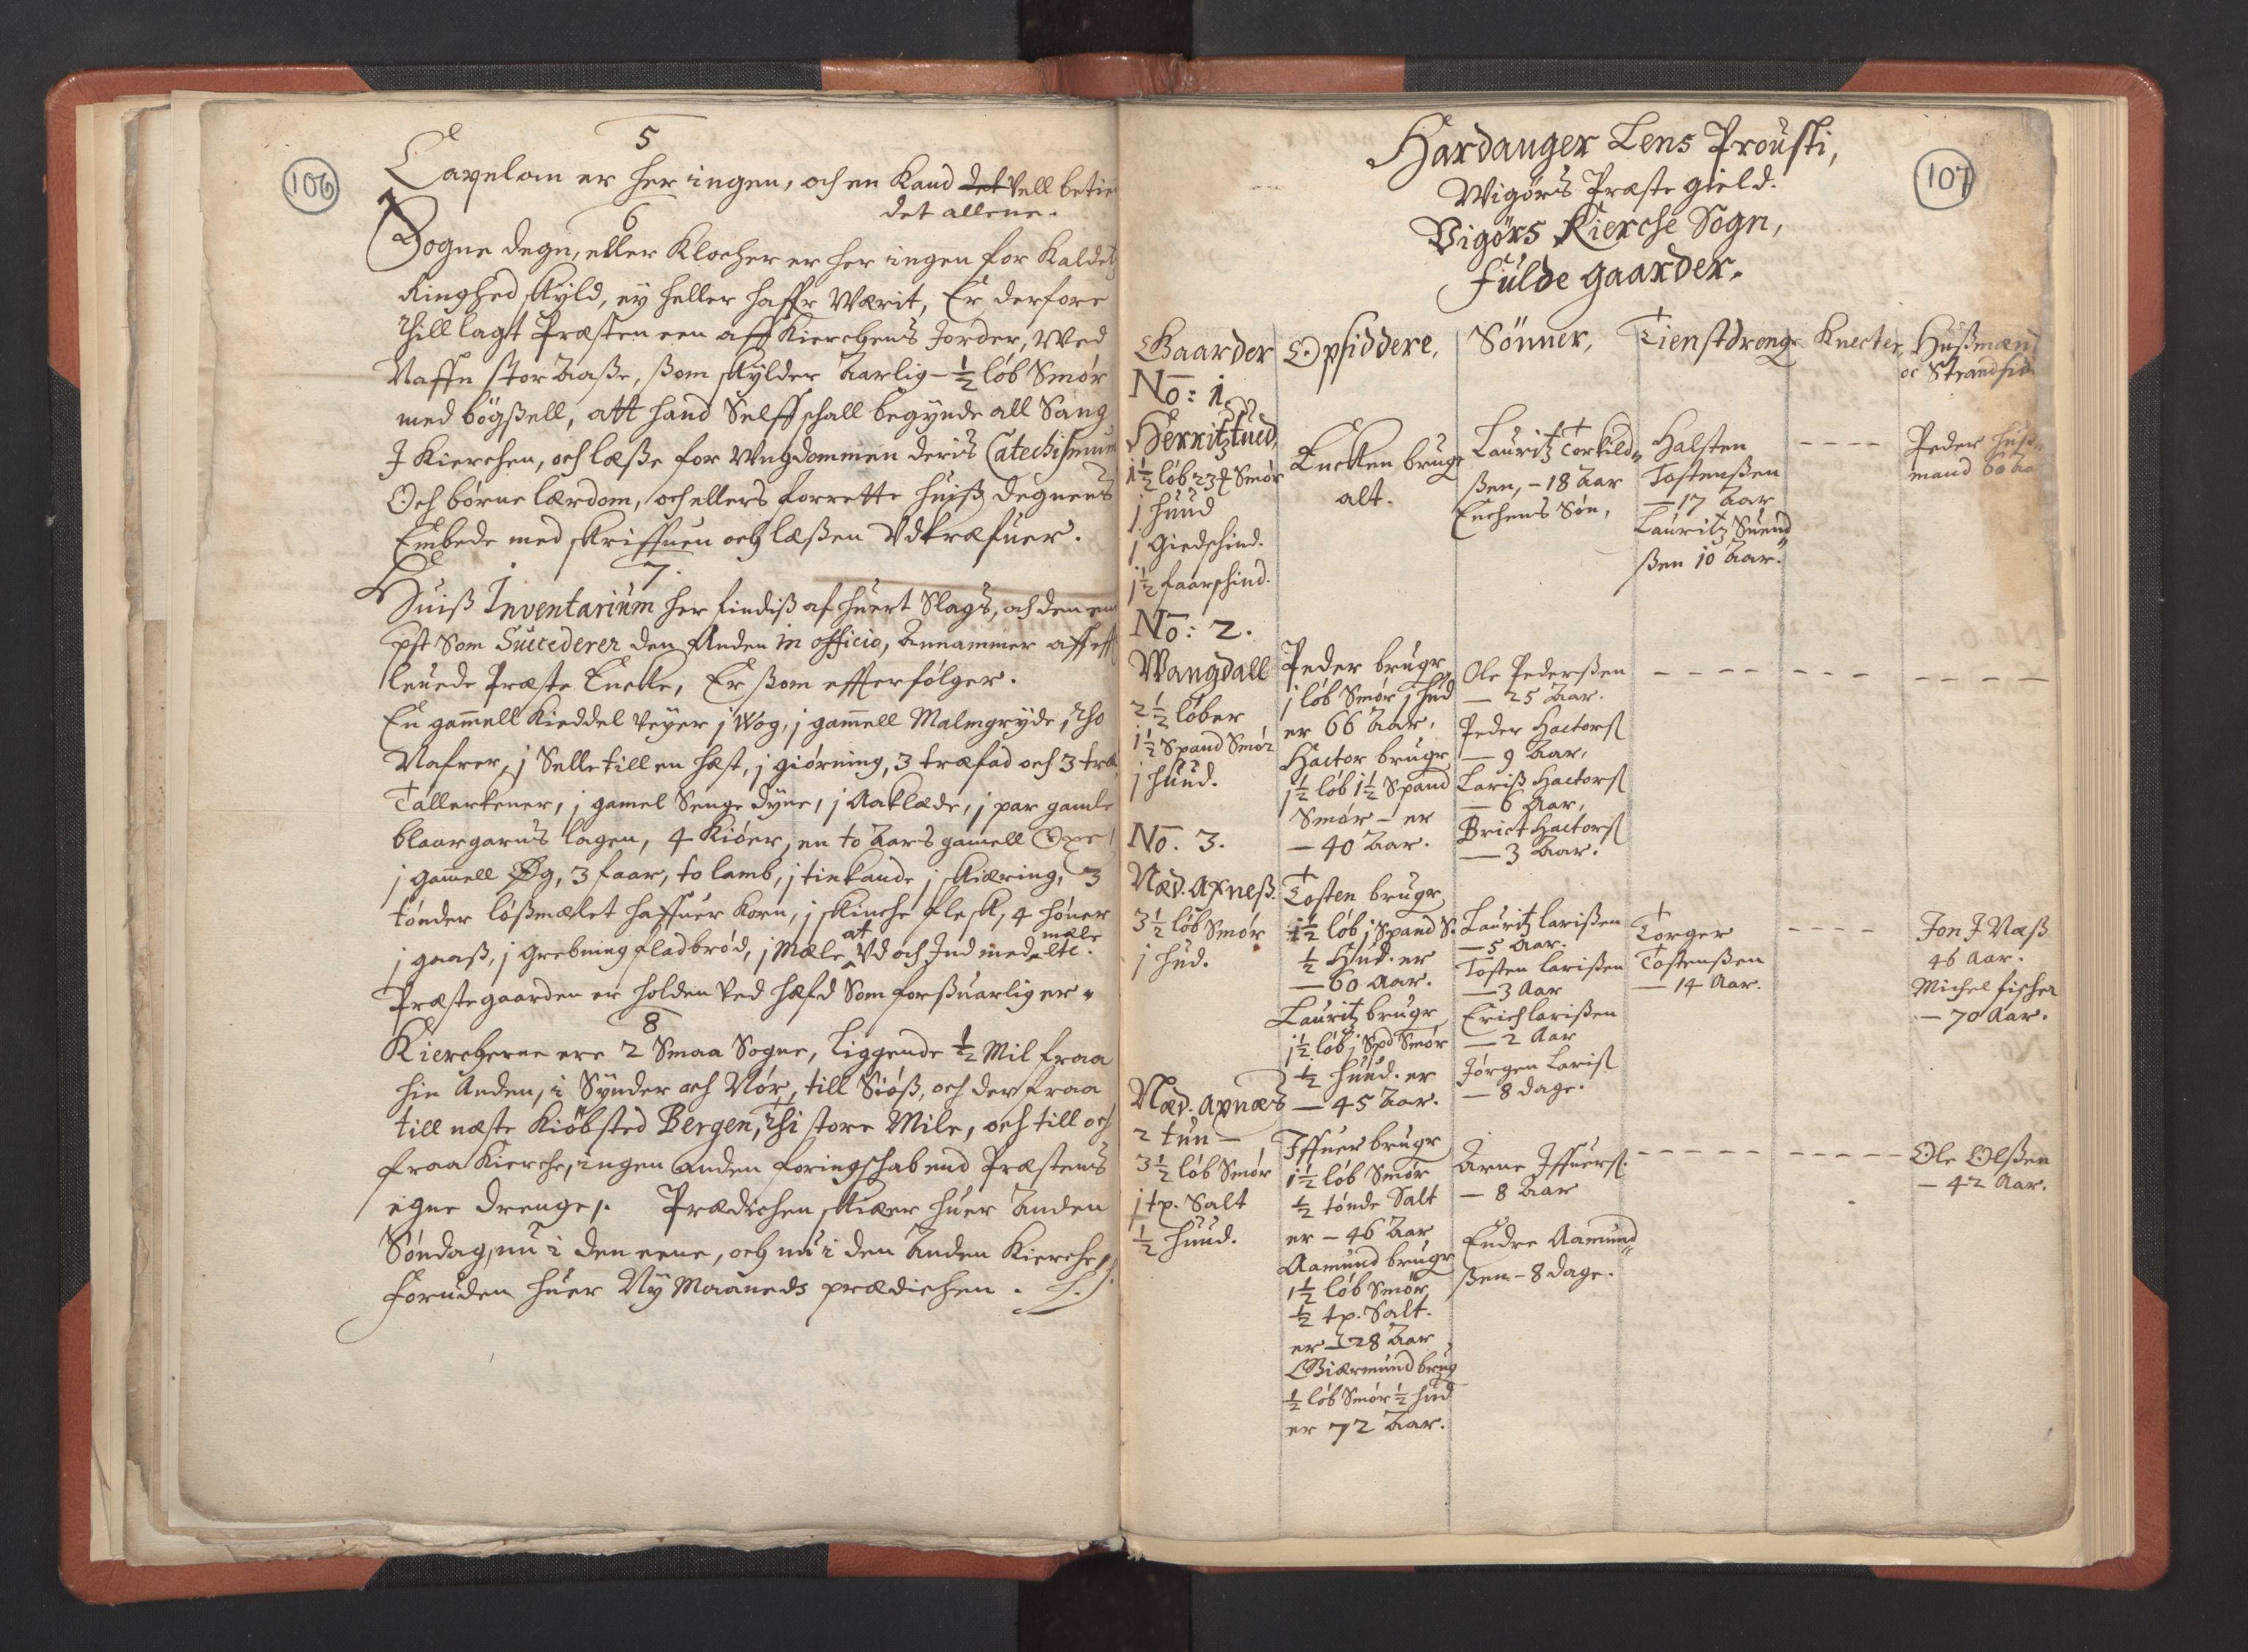 106
5
Capelan er her ingen, och en Kand det Vell betie
det allene.
6
Sogne degn, eller Klocher er her ingen for Kaldetz
Ringhed skyld, ey heller haffr Wærit, Er derfore
thill lagt Præsten een aff Kierchens Jorder, Wed
Naffn stor Aaße, ßom skylder Aarlig - ½ løb Smør
med bögßell, att hand Selff schall begynde all Sang
J Kierchen, och læße for Wngdommen deris Catechismum
Och børne lærdom, och ellers forrette huiß degnens
Embede med skriffuen och læßen Vdkræfuer.
7.
Huiß Inventarium her findiß af huert Slags, och den een
Pst Som Succederer den Anden in officio, Annammer aff eff
leuede Præste Encke, Er ßom effterfølger.
En gammell Kieddel Veyer j Wog, j gammell Malmgryde, tho
Nafrer, j Selle till en hæst, j giörning, 3 træfad och 3 træ
Tallerkener, j gamel Senge dyne, j Aaklæde, j par gamle
blaargarns lagen, 4 Kiöer, en to Aars gamell Oxe,
j gammell Øg, 3 faar, to lamb, j tinkande j skiæring, 3
tönder lößmælet haffuer korn, j skinche flesk, 4 höner
j gaaß, j grebning fladbröd, j Mæle at Vd och Ind med mæle etc.
Præstegaarden er holden Ved hæfd Som forßuarlig er.
8
Kiercherne ere 2 Smaa Sogne, liggende ½ Mil fraa
hin Anden, i Synder och Nör, till Siöß, och der fraa
till næste Kiöbsted Bergen, thi store Mile, och till och
fraa Kierche, ingen anden foringschab end Præstens
egne drenge. Prædichen skiær huer Anden
Söndag, nu i den eene, och nu i den Anden Kierche,
foruden huer Ny Maaneds prædichen.
107
Hardanger Lens Prousti,
Wigörs Præste gield.
Vigörs Kierche Sogn,
fulde gaarder.
Gaarder Opsiddere, Sönner, Tienstdrenge Knecter, Hußmænd
oc Strandsid
No: 1.
Herritztued
1½ løb 23 Smör
j huud
j Giedschind.
j½ faarschind.
Encken brugr
alt.
Lauritz Torkild„
ßen, - 18 Aar
Enchens Søn,
Halsten
Tostenßen
— 17 Aar
Lauritz Suend„
ßen 10 Aar.
Peder huß„
mand 60 Aa
No: 2.
Wangdall
2½ løber
1½ Spand Smör
j huud.
Peder brugr
j løb Smör j hud
er 66 Aar.
Hactor brugr
1½ løb 1½ Spand
Smör - er
— 40 Aar.
Ole Pederßen
— 25 Aar.
Peder Hactorß
— 9 Aar,
Lariß Hactorß
— 6 Aar,
Brict Hactorß
— 3 Aar.
No. 3.
Næd. Axneß.
3½ løb Smör
j hud.
Tosten brugr
1½ løb j Spand S.
½ Hud. er
— 60 Aar.
Lauritz brugr
j½ løb j Spd Smör
½ huud. er
— 45 Aar.
Lauritz larißen
— 5 Aar.
Tosten larißen
— 3 Aar
Erich larißen
— 2 Aar
Jörgen Lariß
— 8 dage.
Torger
Tostenßen
— 14 Aar.
Jon J Næß
46 Aar.
Michel fischer
— 70 Aar.
Næd. Axnæs
2 tun —
3½ løb Smör
j tp. Salt
½ huud.
Iffuer brugr
1½ løb Smör
½ tönde Salt
er - 46 Aar
Aamund brugr
1½ løb Smör
½ tp. Salt.
er - 28 Aar
Giærmund brug
½ løb Smör ½ hud
er 72 Aar.
Arne Iffuerß.
— 8 Aar
Endre Aamund„
ßen - 8 dage.
Ole Olßen
— 42 Aar.